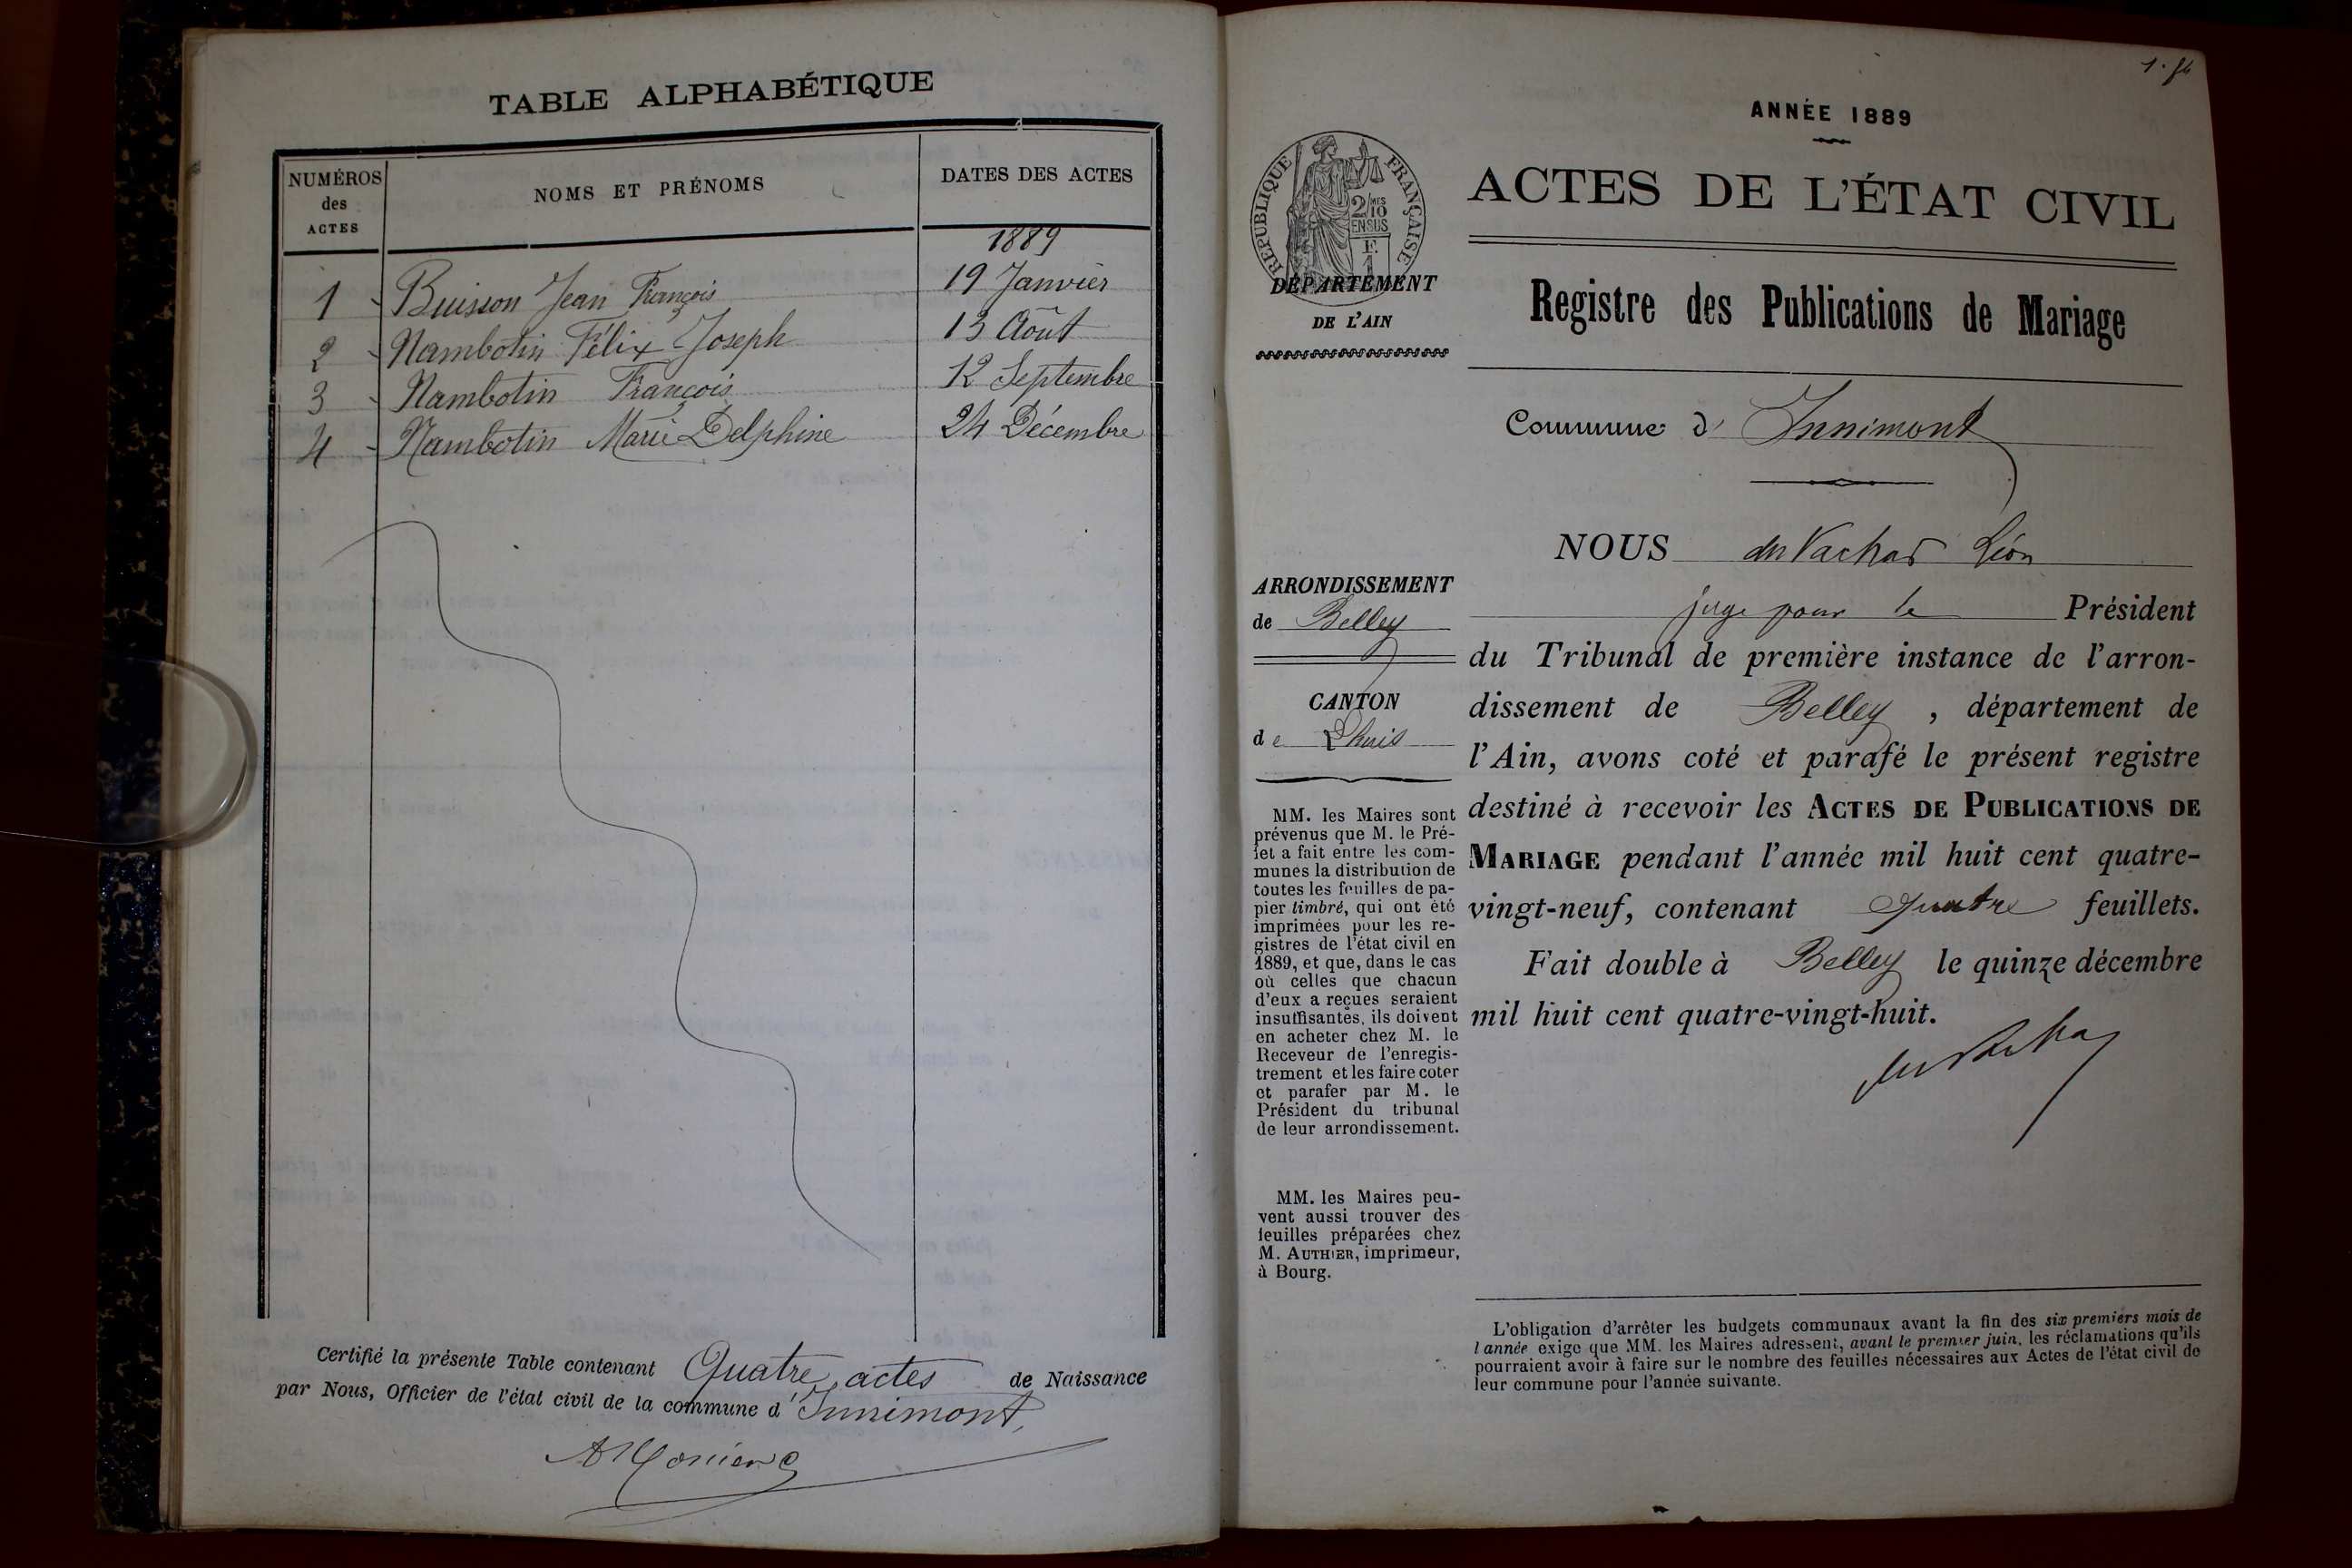 TABLE ALPHABÉTIQUE
NUMÉROS
des
ACTES
NOMS ET PRÉNOMS
DATES DES ACTES
1889
1 Buisson Jean François 19 Janvier
2 Nambotin Félix Joseph 13 Août
3 Nambotin François 12 Septembre
4 Nambotin Marie Delphine 24 Décembre
Certifié la présente Table contenant Quatre actes de Naissance
par Nous, Officier de l'état civil de la commune d'Innimont,
ANNÉE 1889
ACTES DE L'ÉTAT CIVIL
RÉPUBLIQUE FRANÇAISE
2/10 MES
EN SUS
F.
1
DÉPARTEMENT
DE L'AIN
Registre des Publications de Mariage
Commune d' Innimont
NOUS Léon
juge pour le Président
du Tribunal de première instance de l'arron-
dissement de Belley, département de
l'Ain, avons coté et parafé le présent registre
destiné à recevoir les ACTES DE PUBLICATIONS DE
MARIAGE pendant l'année mil huit cent quatre-
vingt-neuf, contenant quatre feuillets.
Fait double à Belley le quinze décembre
mil huit cent quatre-vingt-huit.
ARRONDISSEMENT
de Belley
CANTON
de Lhuis
MM. les Maires sont
prévenus que M. le Pré-
fet a fait entre les com-
munes la distribution de
toutes les feuilles de pa-
pier timbré, qui ont été
imprimées pour les re-
gistres de l'état civil en
1889, et que, dans le cas
où celles que chacun
d'eux a reçues seraient
insuffisantes, ils doivent
en acheter chez M. le
Receveur de l'enregis-
trement et les faire coter
et parafer par M. le
Président du tribunal
de leur arrondissement.
MM. les Maires peu-
vent aussi trouver des
feuilles préparées chez
M. AUTHIER, imprimeur,
à Bourg.
L'obligation d'arrêter les budgets communaux avant la fin des six premiers mois de
l'année exige que MM. les Maires adressent, avant le premier juin, les réclamations qu'ils
pourraient avoir à faire sur le nombre des feuilles nécessaires aux Actes de l'état civil de
leur commune pour l'année suivante.